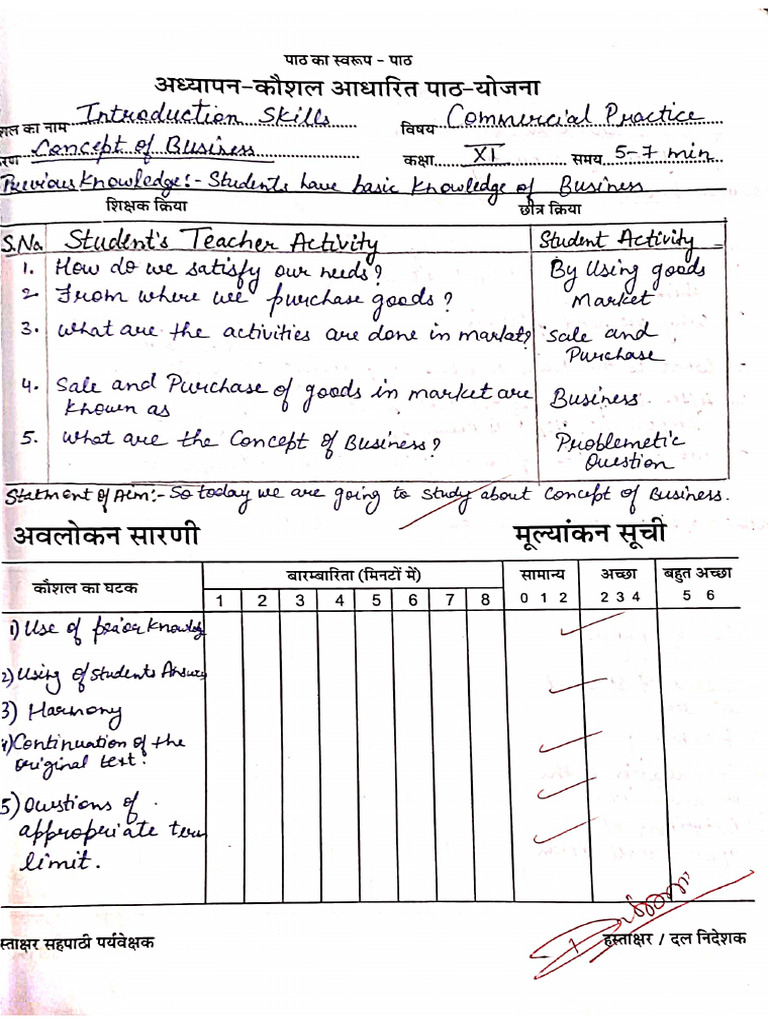 पाठ का स्वरूप - पाठ
अध्यापन-कौशल आधारित पाठ-योजना
शल का नाम Introduction Skills विषय Commercial Practice
रण Concept of Business कक्षा XI समय 5-7 min
Previous Knowledge:- Students have basic knowledge of Business
शिक्षक क्रिया छात्र क्रिया
S.No. Student's Teacher Activity Student Activity
1. How do we satisfy our needs? By Using goods
2. From where we purchase goods? Market
3. What are the activities are done in market? Sale and
Purchase
4. Sale and Purchase of goods in market are
known as Business
5. What are the Concept of Business? Problemetic
Question
Statment of Aim:- So today we are going to study about Concept of Business.
अवलोकन सारणी मूल्यांकन सूची
कौशल का घटक बारम्बारिता (मिनटों में) सामान्य अच्छा बहुत अच्छा
1 2 3 4 5 6 7 8 0 1 2 2 3 4 5 6
1) Use of prior Knowledg
2) Using of Students Answer
3) Harmony
4) Continuation of the
original text.
5) Questions of
appropriate term
limit.
स्ताक्षर सहपाठी पर्यवेक्षक हस्ताक्षर / दल निदेशक